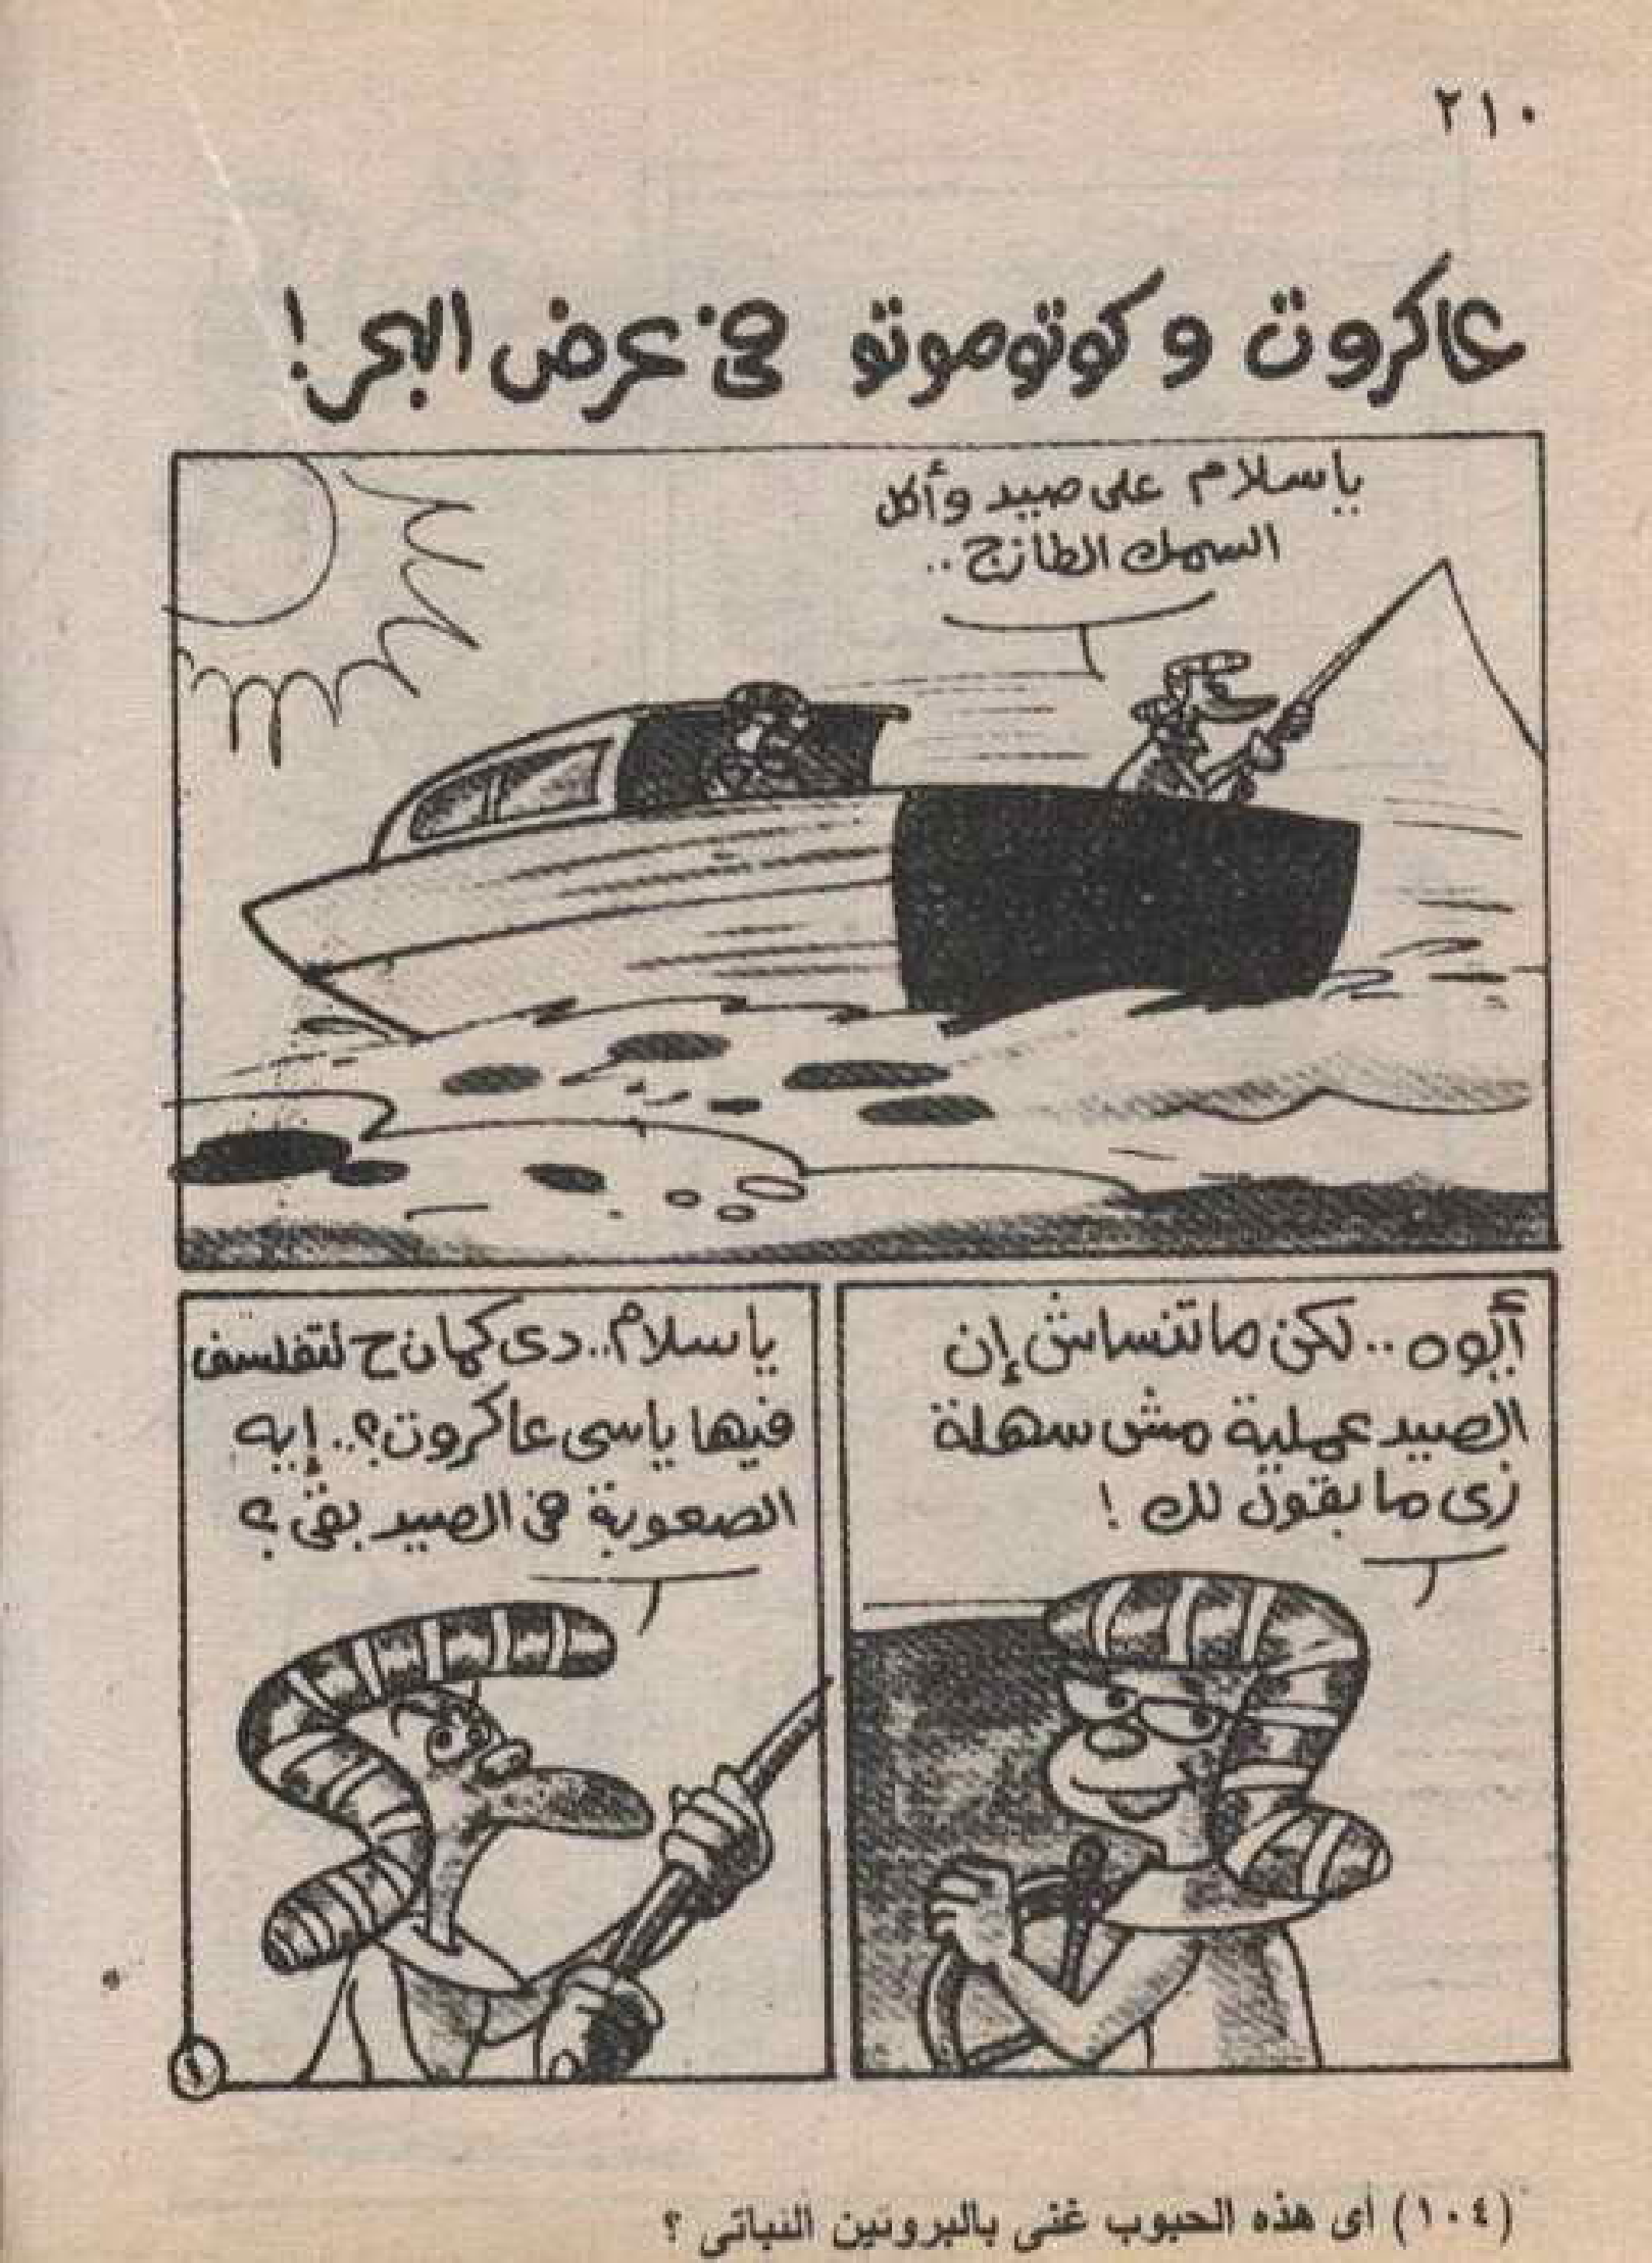 ٢١٠
عاكروت و كوتوموتو فى عرض البحر!
ياسلام على صيد وأكل
السمك الطازج..
أيوه.. لكن ماتنساش إن
الصيد عملية مش سهلة
زى ما بقول لك !
ياسلام.. دى كمان ح تتفلسف
فيها ياسى عاكروت؟.. إيه
الصعوبة فى الصيد بقى ؟
١
(١٠٤) أى هذه الحبوب غنى بالبروتين النباتى ؟